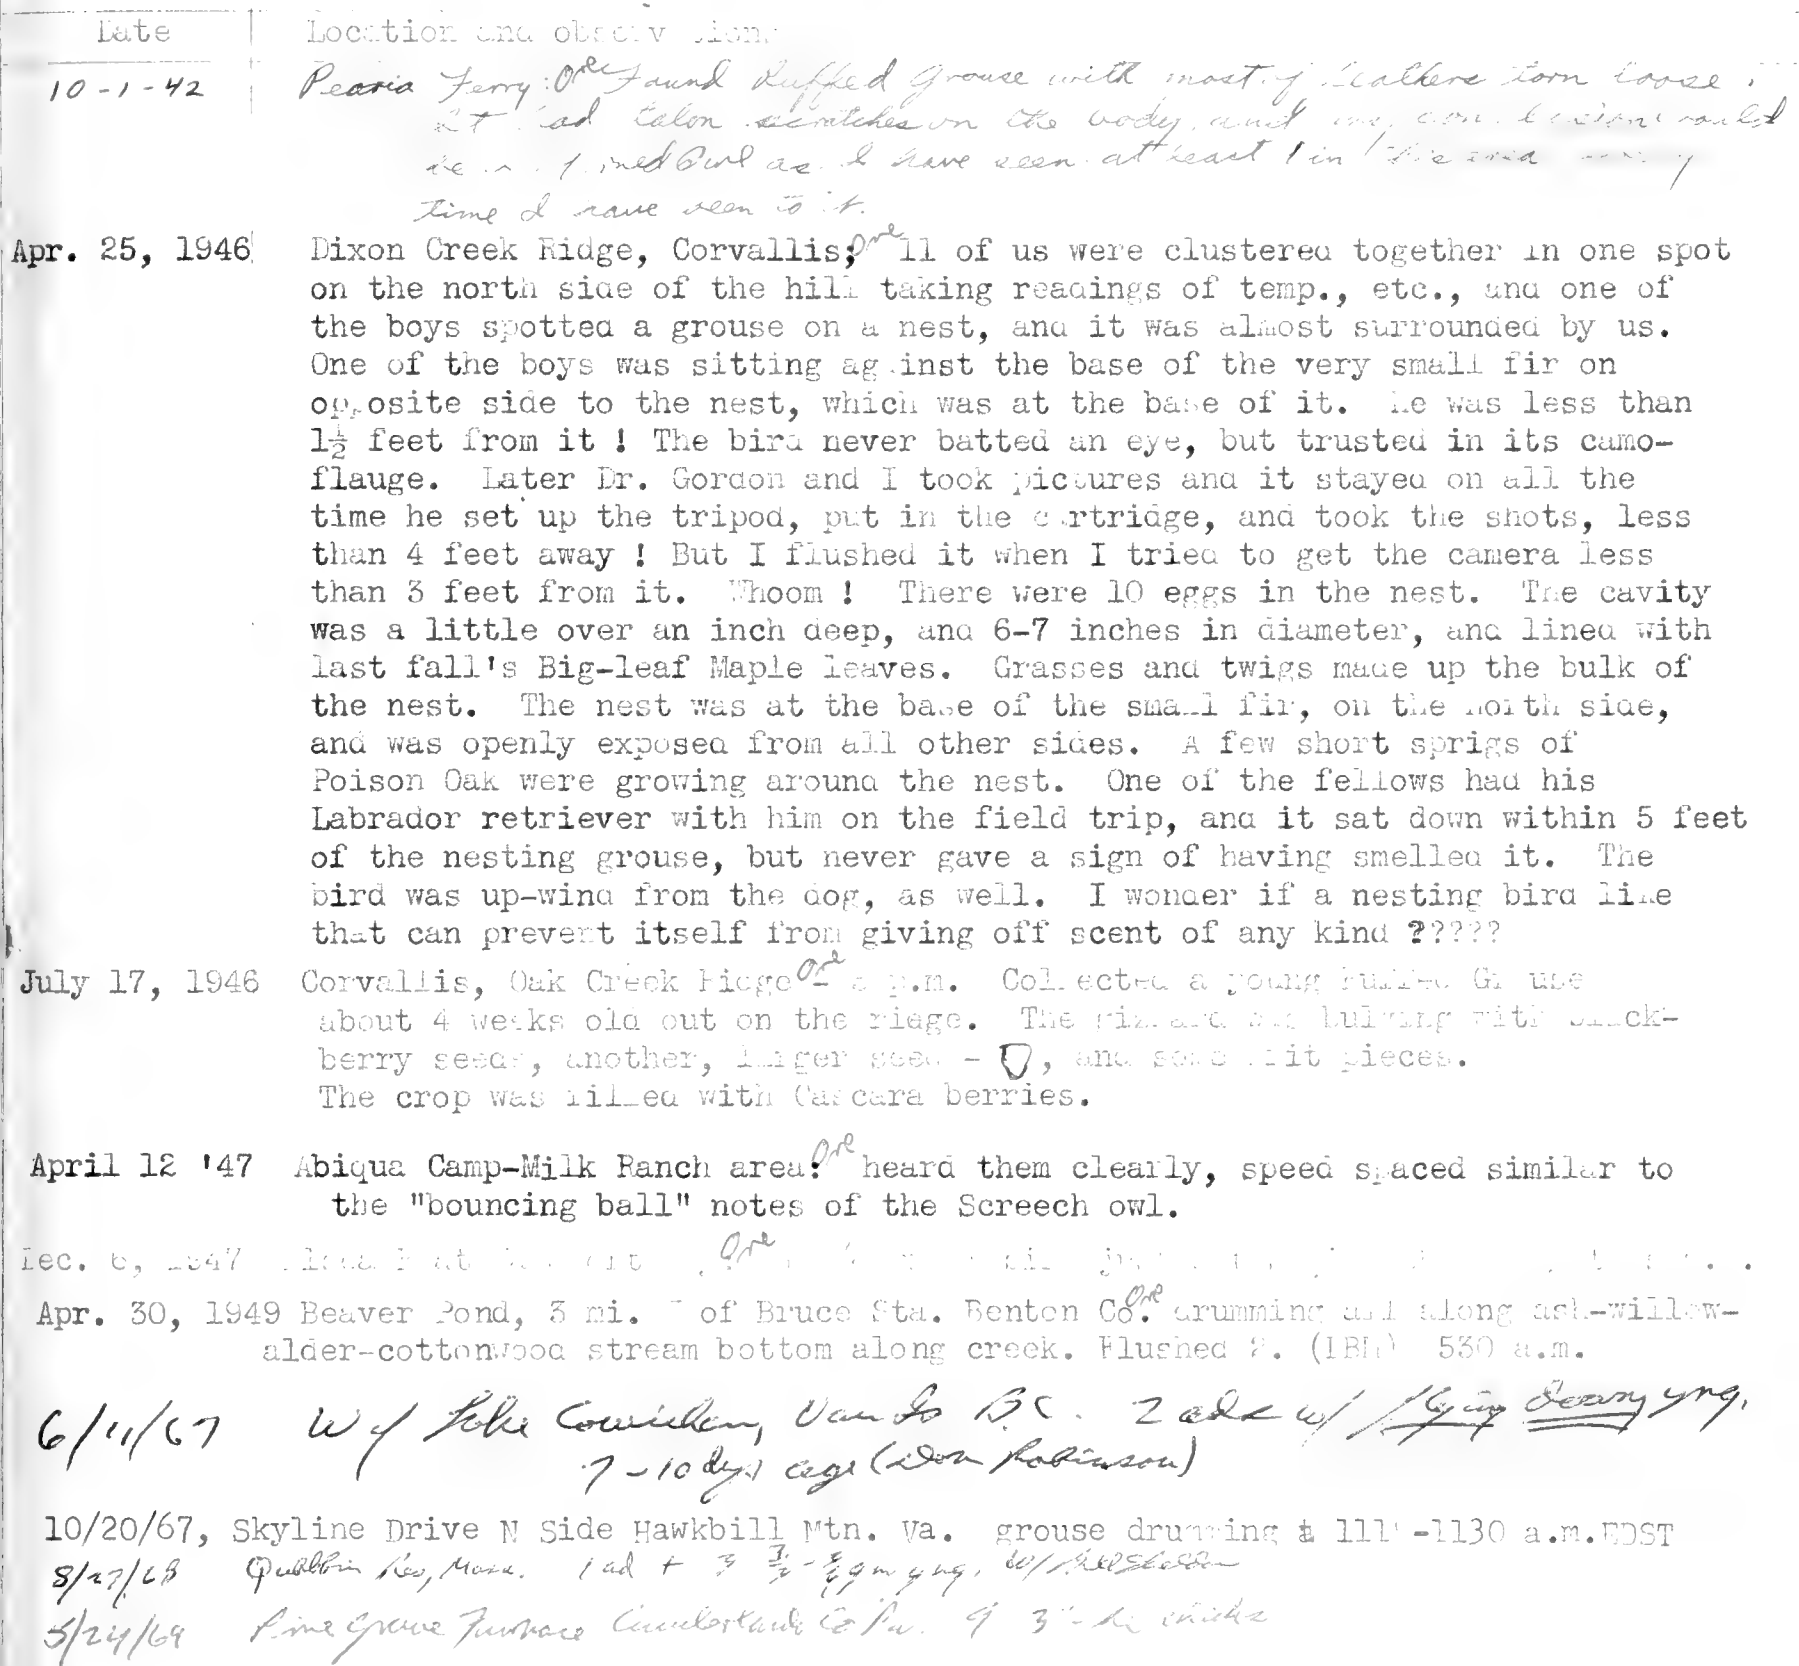 Date Location and observations
10-1-42 Peoria Ferry: Ore Found Ruffed Grouse with most of feathers torn loose
It had talon scratches on the body, and my conclusion would
be Horned Owl as I have seen at least 1 in the area
time I have been to it.
Apr. 25, 1946 Dixon Creek Ridge, Corvallis; Ore 11 of us were clustered together in one spot
on the north side of the hill taking readings of temp., etc., and one of
the boys spotted a grouse on a nest, and it was almost surrounded by us.
One of the boys was sitting against the base of the very small fir on
opposite side to the nest, which was at the base of it. He was less than
1½ feet from it ! The bird never batted an eye, but trusted in its camo-
flauge. Later Dr. Gordon and I took pictures and it stayed on all the
time he set up the tripod, put in the cartridge, and took the shots, less
than 4 feet away ! But I flushed it when I tried to get the camera less
than 3 feet from it. Whoom ! There were 10 eggs in the nest. The cavity
was a little over an inch deep, and 6-7 inches in diameter, and lined with
last fall's Big-leaf Maple leaves. Grasses and twigs made up the bulk of
the nest. The nest was at the base of the small fir, on the north side,
and was openly exposed from all other sides. A few short sprigs of
Poison Oak were growing around the nest. One of the fellows had his
Labrador retriever with him on the field trip, and it sat down within 5 feet
of the nesting grouse, but never gave a sign of having smelled it. The
bird was up-wind from the dog, as well. I wonder if a nesting bird like
that can prevent itself from giving off scent of any kind ?????
July 17, 1946 Corvallis, Oak Creek Ridge Ore - p.m. Collected a young Ruffed Grouse
about 4 weeks old out on the ridge. The gizzard was bulging with black-
berry seeds, another, larger seed - , and some fruit pieces.
The crop was filled with Cascara berries.
April 12 '47 Abiqua Camp-Milk Ranch area: Ore heard them clearly, speed spaced similar to
the "bouncing ball" notes of the Screech owl.
Dec. 6, 1947 Ore
Apr. 30, 1949 Beaver Pond, 3 mi. of Bruce Sta. Benton Co. Ore drumming all along ash-willow-
alder-cottonwood stream bottom along creek. Flushed 2. 530 a.m.
6/11/67 W of Lake Cowichan, Van Is B.C. 2 ads w/ downy yng,
7-10 dys age (Don Robinson)
10/20/67, Skyline Drive N Side Hawkbill Mtn. Va. grouse drumming -1130 a.m. EDST
8/27/68 Quabbin Res, Mass. 1 ad + 3 grn yng, w/
5/24/69 Pine Grove Furnace Cumberland Co Pa. ♀ 3 chicks